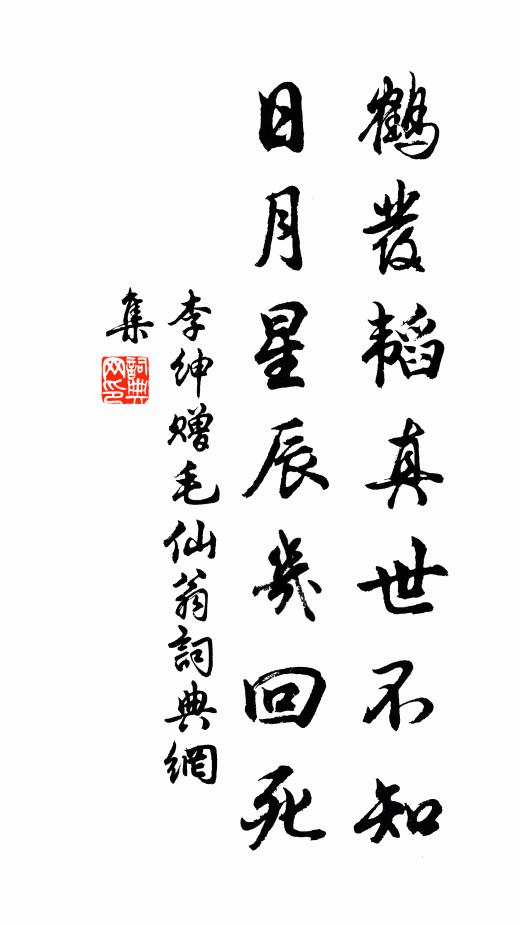 鶴發韜真世不知
日月星辰幾回死
李紳贈毛仙翁詞典網
集
詞典網印